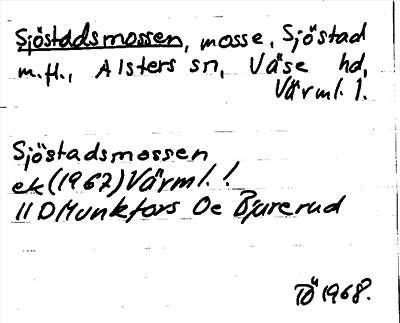 Sjöstadsmossen, mosse, Sjöstad
m.fl., Alsters sn, Väse hd,
Värml. l.
Sjöstadsmossen
ek (1967) Värml. !
11D Munkfors Oe Bjurerud
TÖ 1968.